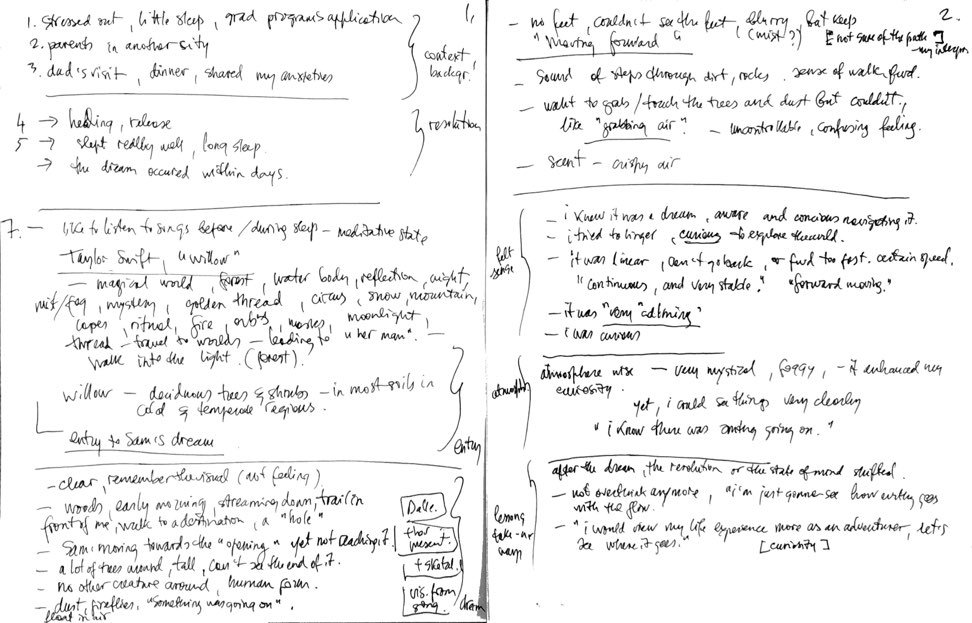 1,
1. stressed out, little sleep, grad programs application
2. parents in another city
3. dad's visit, dinner, shared my anxieties
context,
backgr.
4 → healing, release
5 → slept really well, long sleep.
→ the dream occured within days.
resolution
7. — like to listen to songs before / during sleep – meditative state
Taylor Swift, "willow"
— magical world, forest, water body, reflection, night,
mist/fog, mystery, golden thread, circus, snow, mountain,
capes, ritual, fire, orbs, masks, moonlight,
thread – travel to worlds – leading to "her man". –
walk into the light. (forest).
willow – deciduous trees & shrubs – in most soils in
cold & temperate regions.
entry to Sam's dream
entry
– clear, remember the visual (not feeling)
– woods, early morning, streaming down, trail in
front of me, walk to a destination, a "hole"
– Sam: moving towards the "opening" yet not reaching it?
– a lot of trees around, tall, can't see the end of it.
– no other creature around, human form.
– dust, fireflies, "something was going on".
float in air
Dalle.
+ sketch.
vis. from
song.
dream
2.
– no feet, couldn't see the feet, blurry, but keep
"moving forward" (mist?) [not sure of the path]
– my interpr.
– sound of steps through dirt, rocks. sense of walk fwd.
– want to grab / touch the trees and dust but couldn't,
like "grabbing air". – uncontrollable, confusing feeling.
– scent – crispy air
felt
sense
– i knew it was a dream, aware and concious navigating it.
– i tried to linger, curious to explore the world.
– it was linear, can't go back, or fwd too fast. certain speed.
"continuous, and very stable." "forward moving."
– it was "very" calming"
– i was curious
atmosphere wise – very mystical, foggy, – it enhanced my
curiosity.
yet, i could see things very clearly
"i know there was something going on."
after the dream, the resolution or the state of mind shifted.
– not overthink anymore, "i'm just gonna see how everything goes
with the flow.
– "i would view my life experience more as an adventurer, let's
see where it goes."
[curiosity]
lessons
take-
away